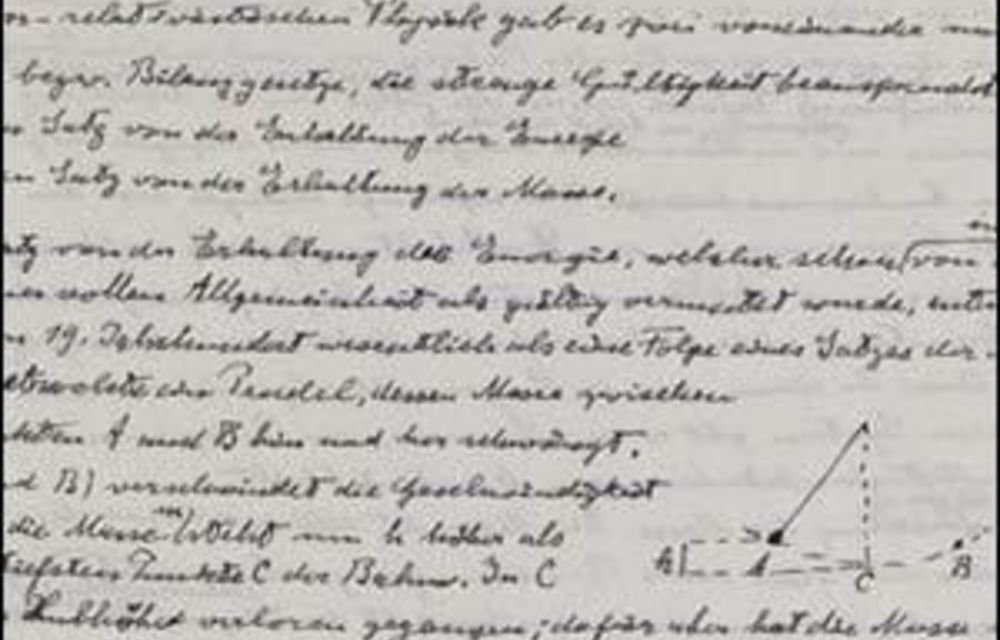 relativistischen Physik gab es zwei voneinander
bezw. Bilanzgesetze, die strenge Gültigkeit beanspruchten
Satz von der Erhaltung der Energie
Satz von der Erhaltung der Masse.
von der Erhaltung der Energie, welcher schon von
vollen Allgemeinheit als gültig vermutet wurde,
19. Jahrhundert wesentlich als eine Folge eines Satzes der
ein Pendel, dessen Masse zwischen
A und B hin und her schwingt.
d B) verschwindet die Geschwindigkeit
die Masse m steht um h höher als
tiefsten Punkte C der Bahn. In C
Hubhöhe verloren gegangen; dafür aber hat die Masse
h A C B